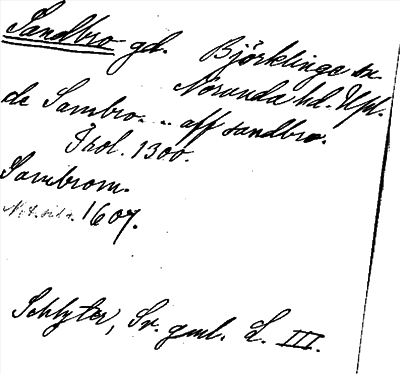 Sandbro gd. Björklinge sn.
Norunda hd. Upl.
de Sambro. .. aff sandbro.
Thol. 1300.
Sambrom.
1607.
Schlyter, Sv. gml. L. III.